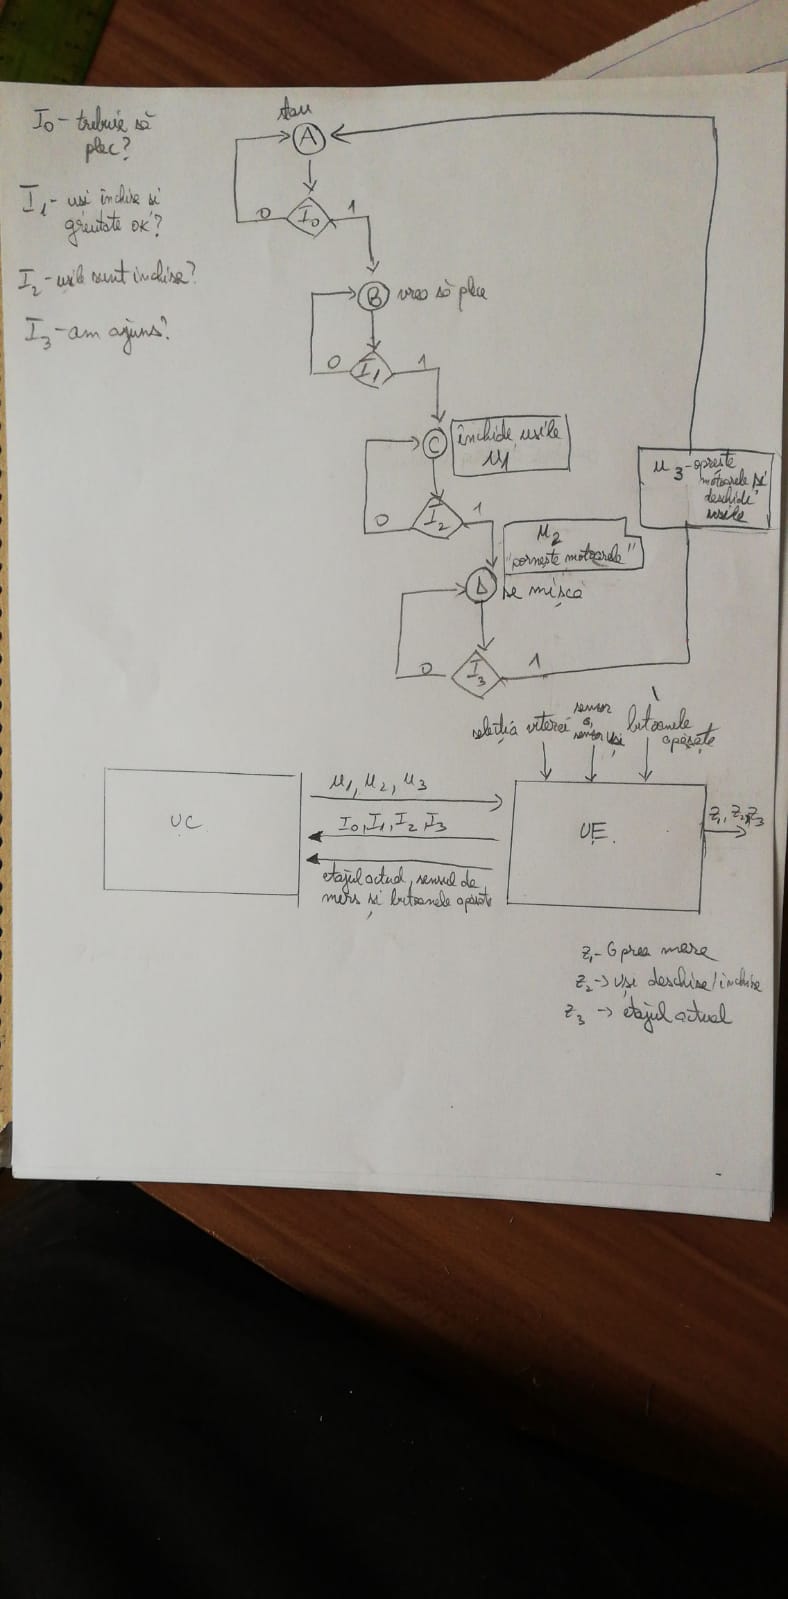 I0 - trebuie să
plec?
I1 - usi închise si
greutate OK?
I2 - usile sunt inchise?
I3 - am ajuns?
stau
A
I0
0
1
B vreo să plec
I1
0
1
C
închide usile
μ1
I2
0
1
μ2
"pornește motoarele"
D
se mișcă
I3
0
1
μ3 - oprește
motoarele și
deschide
usile
selecția vitezei
sensor
G,
sensor uși
butoanele
apăsate
UC
μ1, μ2, μ3
I0, I1, I2, I3
etajul actual, sensul de
mers și butoanele apăsate
UE
z1, z2, z3
z1 - G prea mare
z2 -> Uși deschise/inchise
z3 -> etajul actual